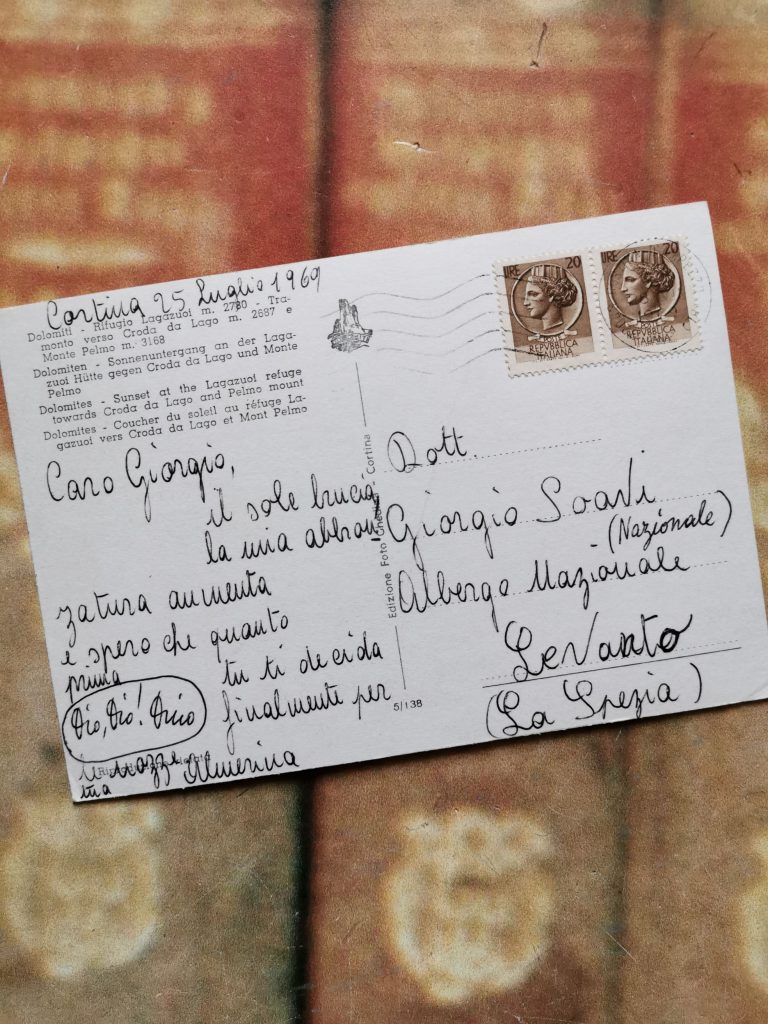 Cortina 25 Luglio 1969
Dolomiti - Rifugio Lagazuoi m. 2780 - Tra-
monto verso Croda da Lago m. 2687 e
Monte Pelmo m. 3168
Dolomiten - Sonnenuntergang an der Laga-
zuoi Hütte gegen Croda da Lago und Monte
Pelmo
Dolomites - Sunset at the Lagazuoi refuge
towards Croda da Lago and Pelmo mount
Dolomites - Coucher du soleil au réfuge La-
gazuoi vers Croda da Lago et Mont Pelmo
Caro Giorgio,
il sole brucia
la mia abbron
zatura aumenta
e spero che quanto
prima tu ti decida
finalmente per
Almerina
Edizione Foto - Cortina
5/138
LIRE 20
REPVBBLICA
ITALIANA
LIRE 20
REPVBBLICA
ITALIANA
Dott.
Giorgio Soavi
(Nazionale)
Albergo Nazionale
Levanto
(La Spezia)